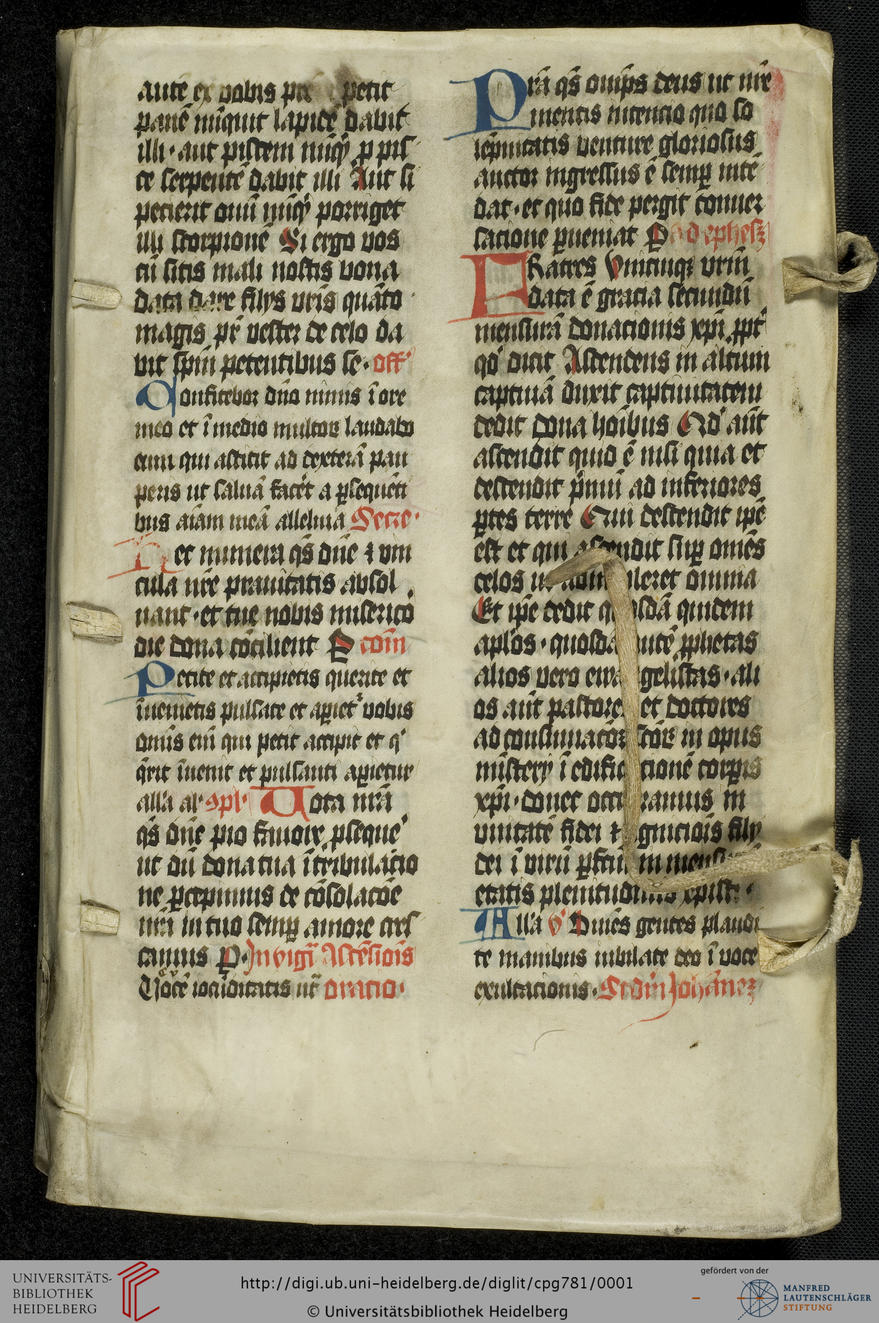 aute ex vobis pr̄e petit
panē nūquit lapidē dabit
illi · aut piscem nūq̄ p pis
ce serpentē dabit illi Aut si
petierit ouū nūq̄ porriget
illi scorpionē Si ergo vos
cū sitis mali nostis bona
data dare filijs vr̄is quāto
magis pr̄ vester de celo da
bit sp̄m petentibus se · off̄
Confitebor dn̄o nimis ī ore
meo et ī medio multoꝝ laudabo
eum qui astitit ad dexterā pau
peris ut saluā facēt a ꝑsequen
bus aīam meā alleluia Secre ·
Hec munera qs̄ dn̄e ⁊ vin
cula nr̄e prauitatis absol
uant · et tue nobis miserico
die dona cōcilient P com̄
Petite et accipietis querite et
īuenietis pulsate et apiet᷑ vobis
omīs eni qui petit accipit et q¹
q̄rit īuenit et pulsanti apietur
all̄a al · opl̄ · Uota nr̄a
qs̄ dn̄e pio fauore ꝓseque᷑
ut dū dona tua ī tribulacio
ne ꝑcepimus de cōsolacōe
nr̄a in tuo semꝑ amore cres
camus P · In vigī Ascēsiois
Uocē iocūditatis ut̄ oracio ·
Pr̄a qs̄ om̄ps deus ut nr̄e
mentis intencio quo so
lēpnitatis venture gloriosus
auctor ingressus ē semꝑ inte
dat · et quo fide pergit conuer
sacione ꝑueniat P Ad ephesꝫ
FRatres Vnicuiqꝫ vrm̄
data ē gracia secundū
mensurā donacionis xp̄i ꝓpt̄
qd̄ dicit Ascendens in altum
captiuā duxit captiuitatem
dedit dona hoībus Qd̄ aūt
ascendit quid ē nisi quia et
descendit p̄mū ad inferiores
ꝑtes terre Qui descendit ip̄e
est et qui ascendit suꝑ om̄es
celos ut adimpleret omnia
Et ip̄e dedit quosdā quidem
apl̄os · quosdā autē ꝓphetas
alios vero ewāgelistas · ali
os aūt pastores et doctores
ad consumacōꝫ scōꝝ in opus
mīsterij ī edificacionē corꝑis
xp̄i · donec occurramus in
vnitatē fidei ⁊ agnicōis filij
dei ī virū ꝑfcm̄ in mensurā
etatis plenitudinis xpisti ·
All̄a v̄ Omēs gentes plaudi
te manibus iubilate deo ī voce
exultacionis · Scdm̄ Johannē
UNIVERSITÄTS-
BIBLIOTHEK
HEIDELBERG
http://digi.ub.uni-heidelberg.de/diglit/cpg781/0001
© Universitätsbibliothek Heidelberg
gefördert von der
MANFRED
LAUTENSCHLÄGER
STIFTUNG